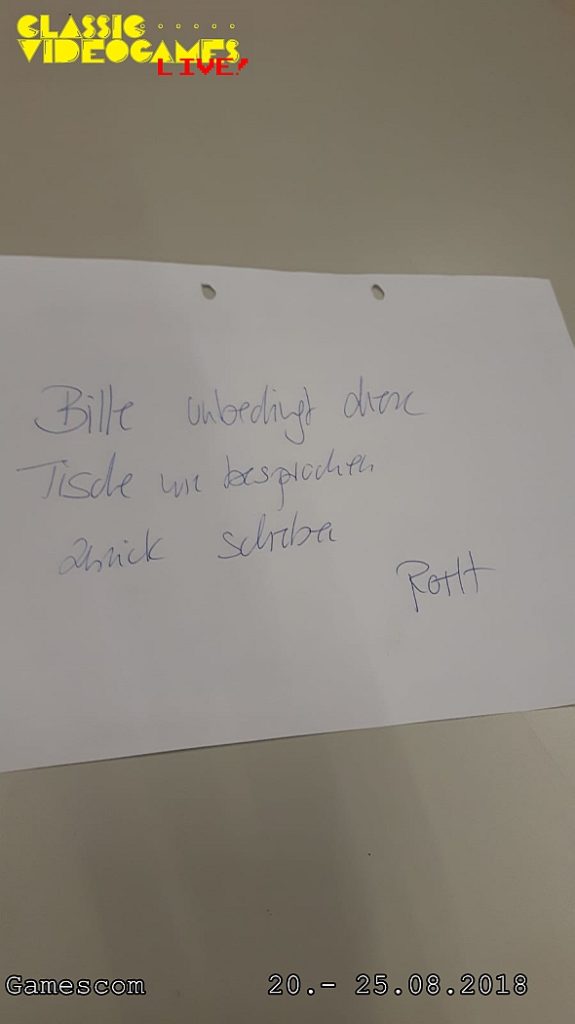 CLASSIC
VIDEOGAMES
LIVE!
Bitte unbedingt diese
Tische wie besprochen
zurück schieben
Roth
Gamescom 20.- 25.08.2018